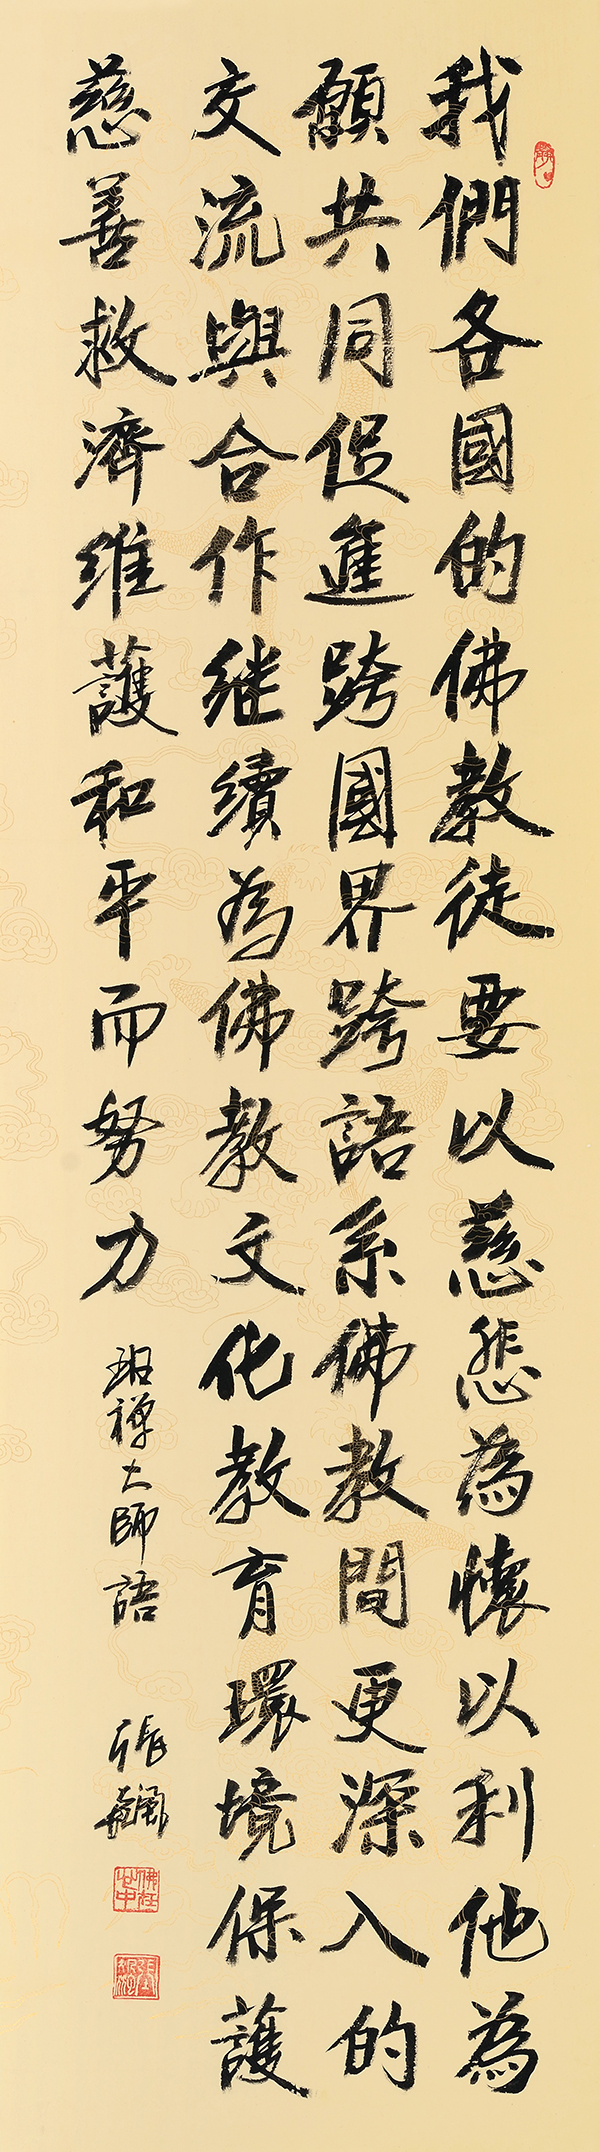 我們各國的佛教徒要以慈悲為懷以利他為
願共同促進跨國界跨語系佛教間更深入的
交流與合作继續為佛教文化教育環境保護
慈善救濟維護和平而努力
班禅大師語
張
佛在心中